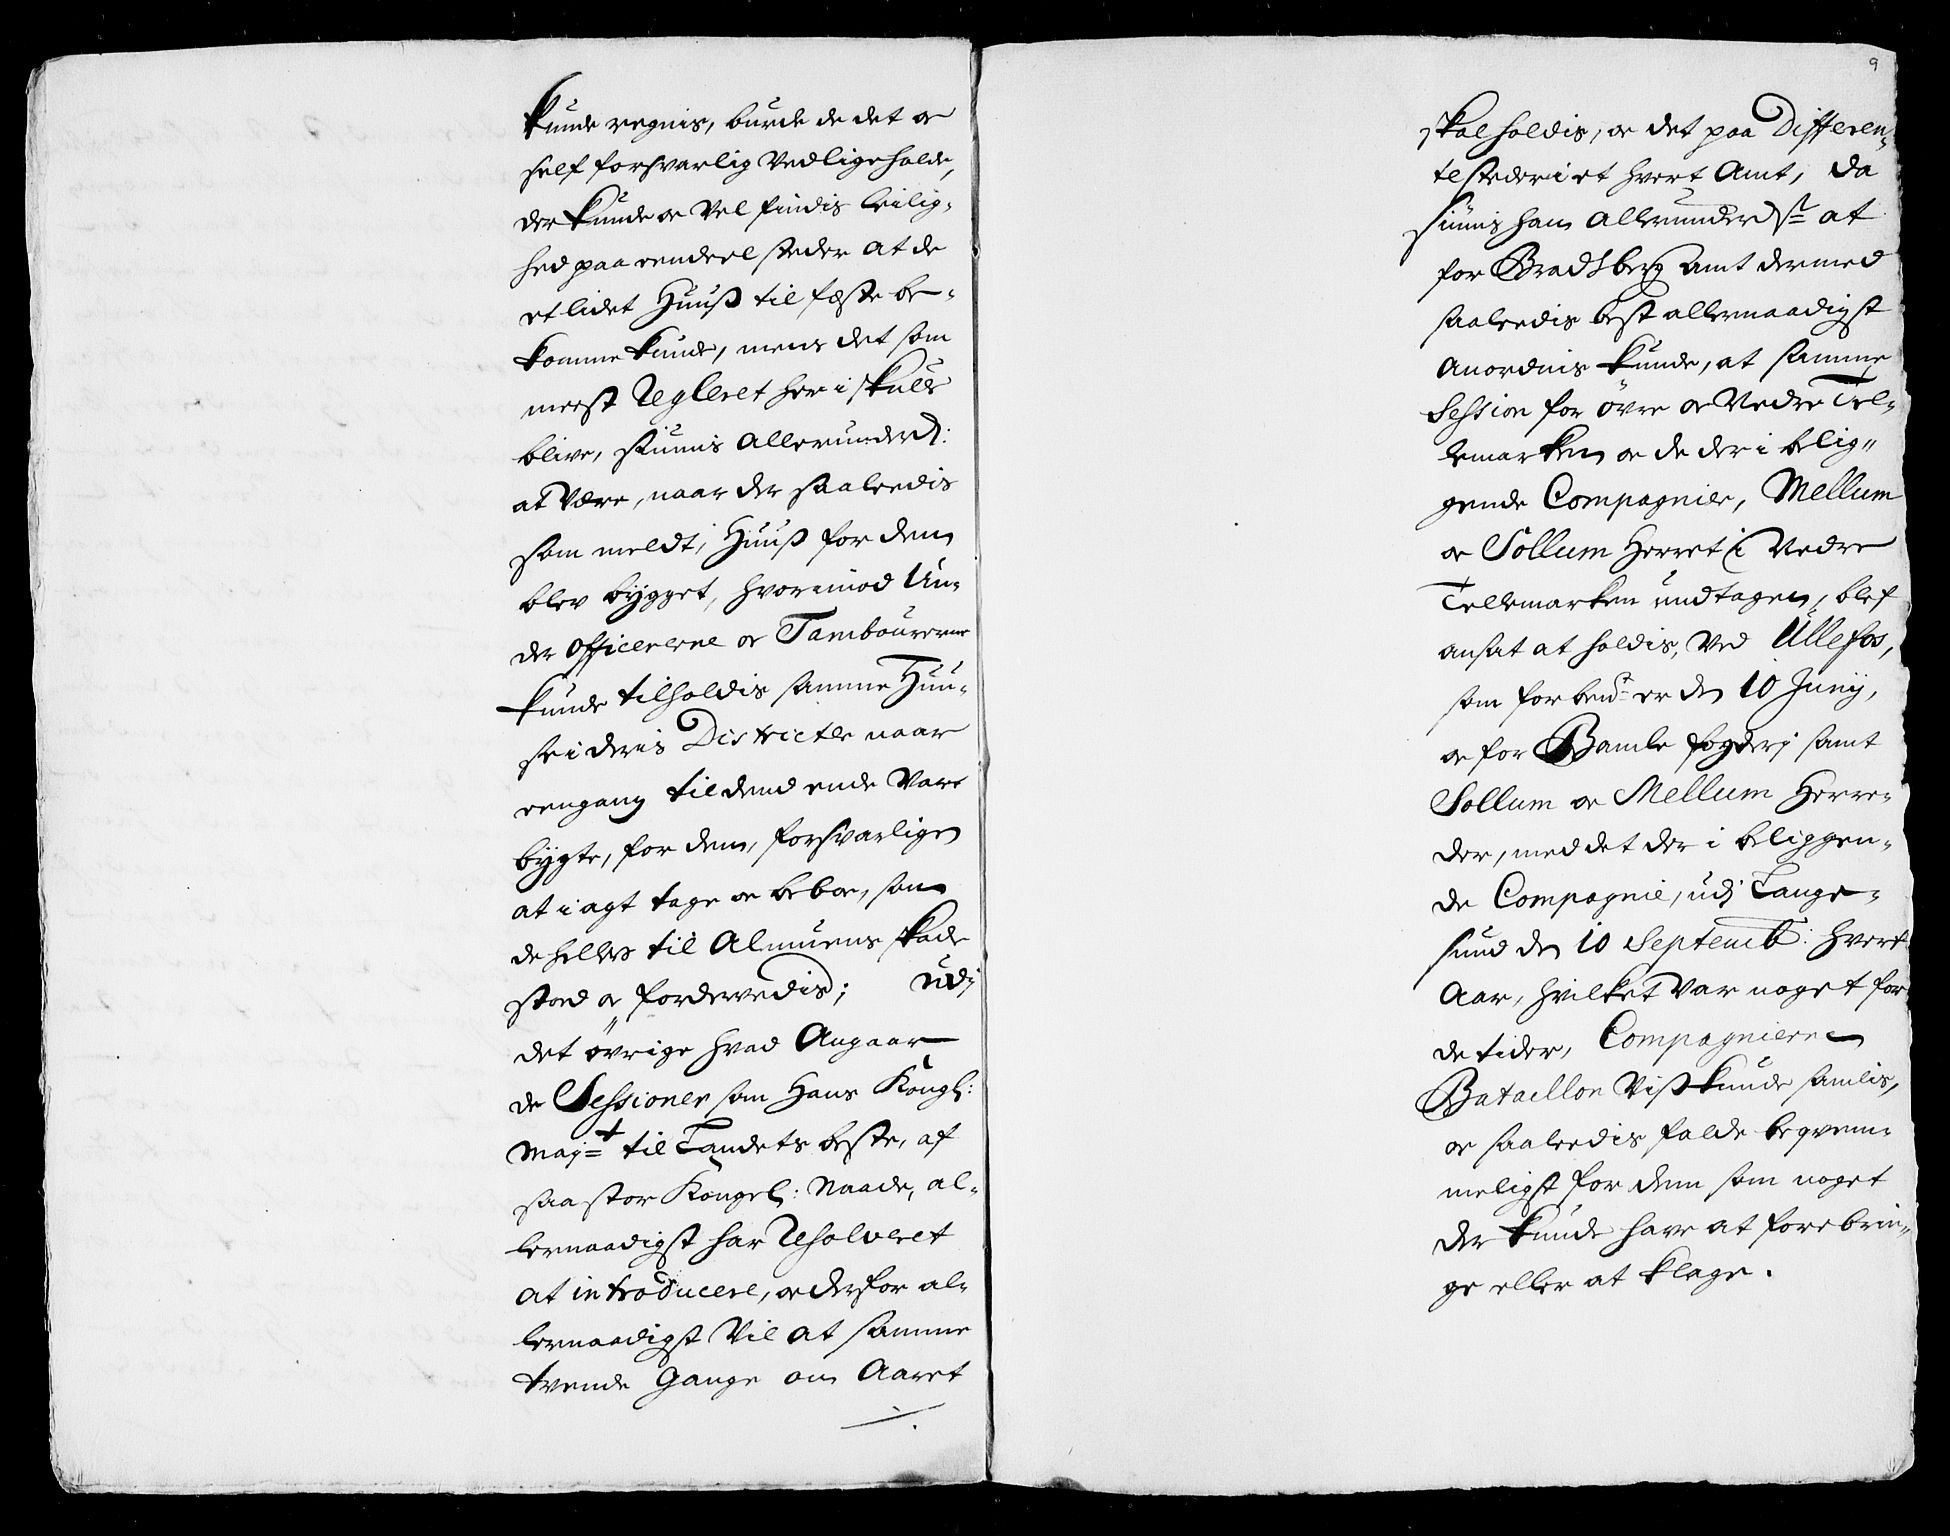 kunde regnis, burde de det oc
self forsvarlig Vedligeholde,
der kunde oc Vel findis leilig-
hed paa eendeel steder at de
et lidet Huuß til fæste be-
komme kunde, mens det som
meest Regleret her i skulle
blive, siunis allerunderd:
at være, naar der saaledis
som meldt, Huuß for dem
blev bÿgget, hvorimod Un-
der officererne oc Tambourerne
kunde tilholdis samme Huu-
se i deris Districter naar
eengang til dend ende Vare
bÿgte, for dem, forsvarligen
at i agt tage oc beboe, som
de hellers til Almuens skade
stoed oc fordervedis; udj
det øvrige hvad Angaar
de Sessioner som Hans Kongl:
Maj=t til Landets beste, af
saa stor Kongel: Naade, al-
lernaadigst har Resolveret
at introducere, oc derfor al-
lernaadigst Vil at samme
tvende Gange om Aaret
9
skal holdis, oc det paa Differen-
te steder i et hvert Amt, da
siunis ham allerunderdst at
for Bradsberg Amt dermed
saaledis best allernaadigst
Anordnis kunde, at samme
Session for øvre oc Nedre Tel-
lemarken oc de der i belig-
gende Compagnier, Mellum
oc Sollum Herret i Nedre
Tellemarken undtagen, blef
ansat at holdis, Ved Ullefos,
som forbent er den 10 Junij,
oc for Bamle fogderj samt
Sollum oc Mellum Herre-
der, med det der i beliggen-
de Compagnie, udj Lange-
sund den 10 Septemb: hvert
Aar, hvilket Var noget for
de tider, Compagnierne
Bataillon Viß kunde samlis,
oc saaledis falde beqvem-
meligst for dem som noget
der kunde have at forebrin-
ge eller at klage.